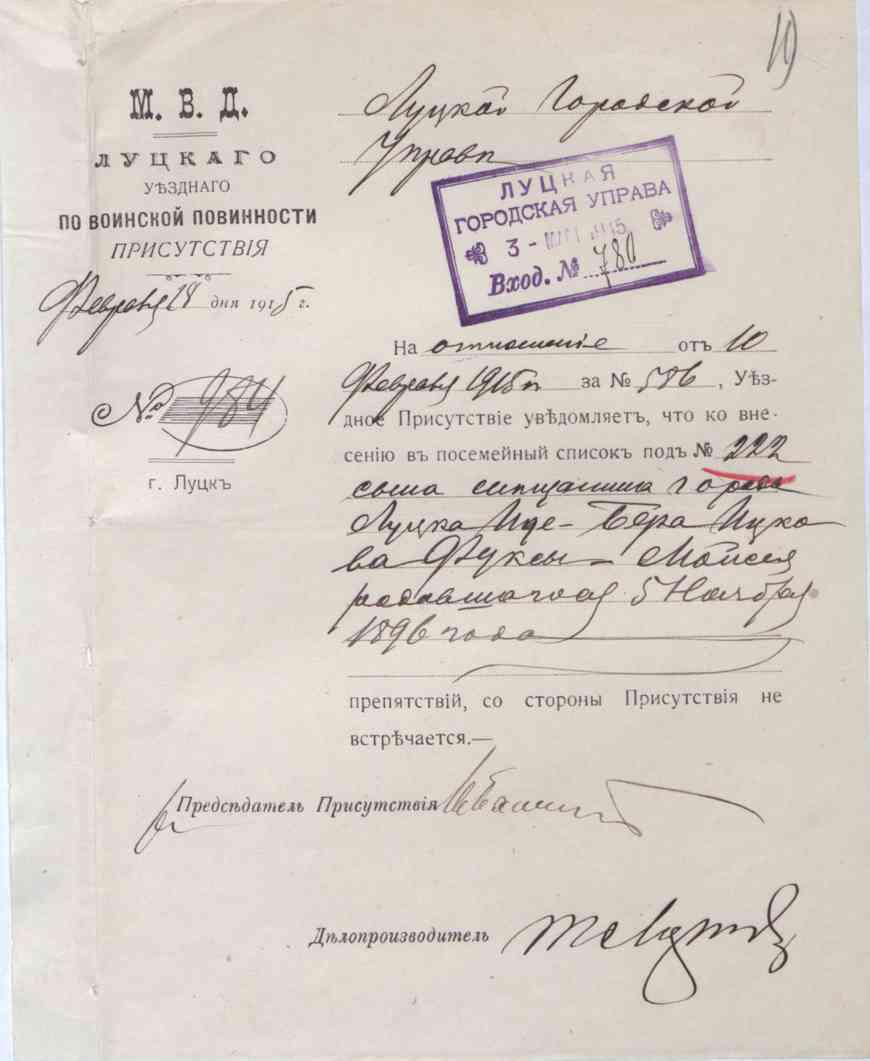 19
М. В. Д.
ЛУЦКАГО
УѢЗДНАГО
ПО ВОИНСКОЙ ПОВИННОСТИ
ПРИСУТСТВІЯ
Февраля 18 дня 1915 г.
№ 984
г. Луцкъ
Луцкой Городской
Управѣ
ЛУЦКАЯ
ГОРОДСКАЯ УПРАВА
3 - МАР 1915
Вход. № 780
На отношеніе отъ 10
Февраля 1915 г. за № 586, Уѣз-
дное Присутствіе увѣдомляетъ, что ко вне-
сенію въ посемейный списокъ подъ № 222
сына мѣщанина города
Луцка Иде-Бера Ицко
ва Фукса - Мойсея
родившагося 5 Ноября
1896 года
препятствій, со стороны Присутствія не
встрѣчается.—
Предсѣдатель Присутствія
Дѣлопроизводитель